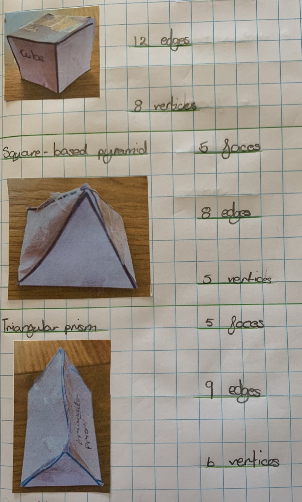 Cube
12 edges
8 vertices
Square-based pyramid
5 faces
8 edges
5 vertices
Triangular prism
5 faces
9 edges
Triangular
prism
6 vertices